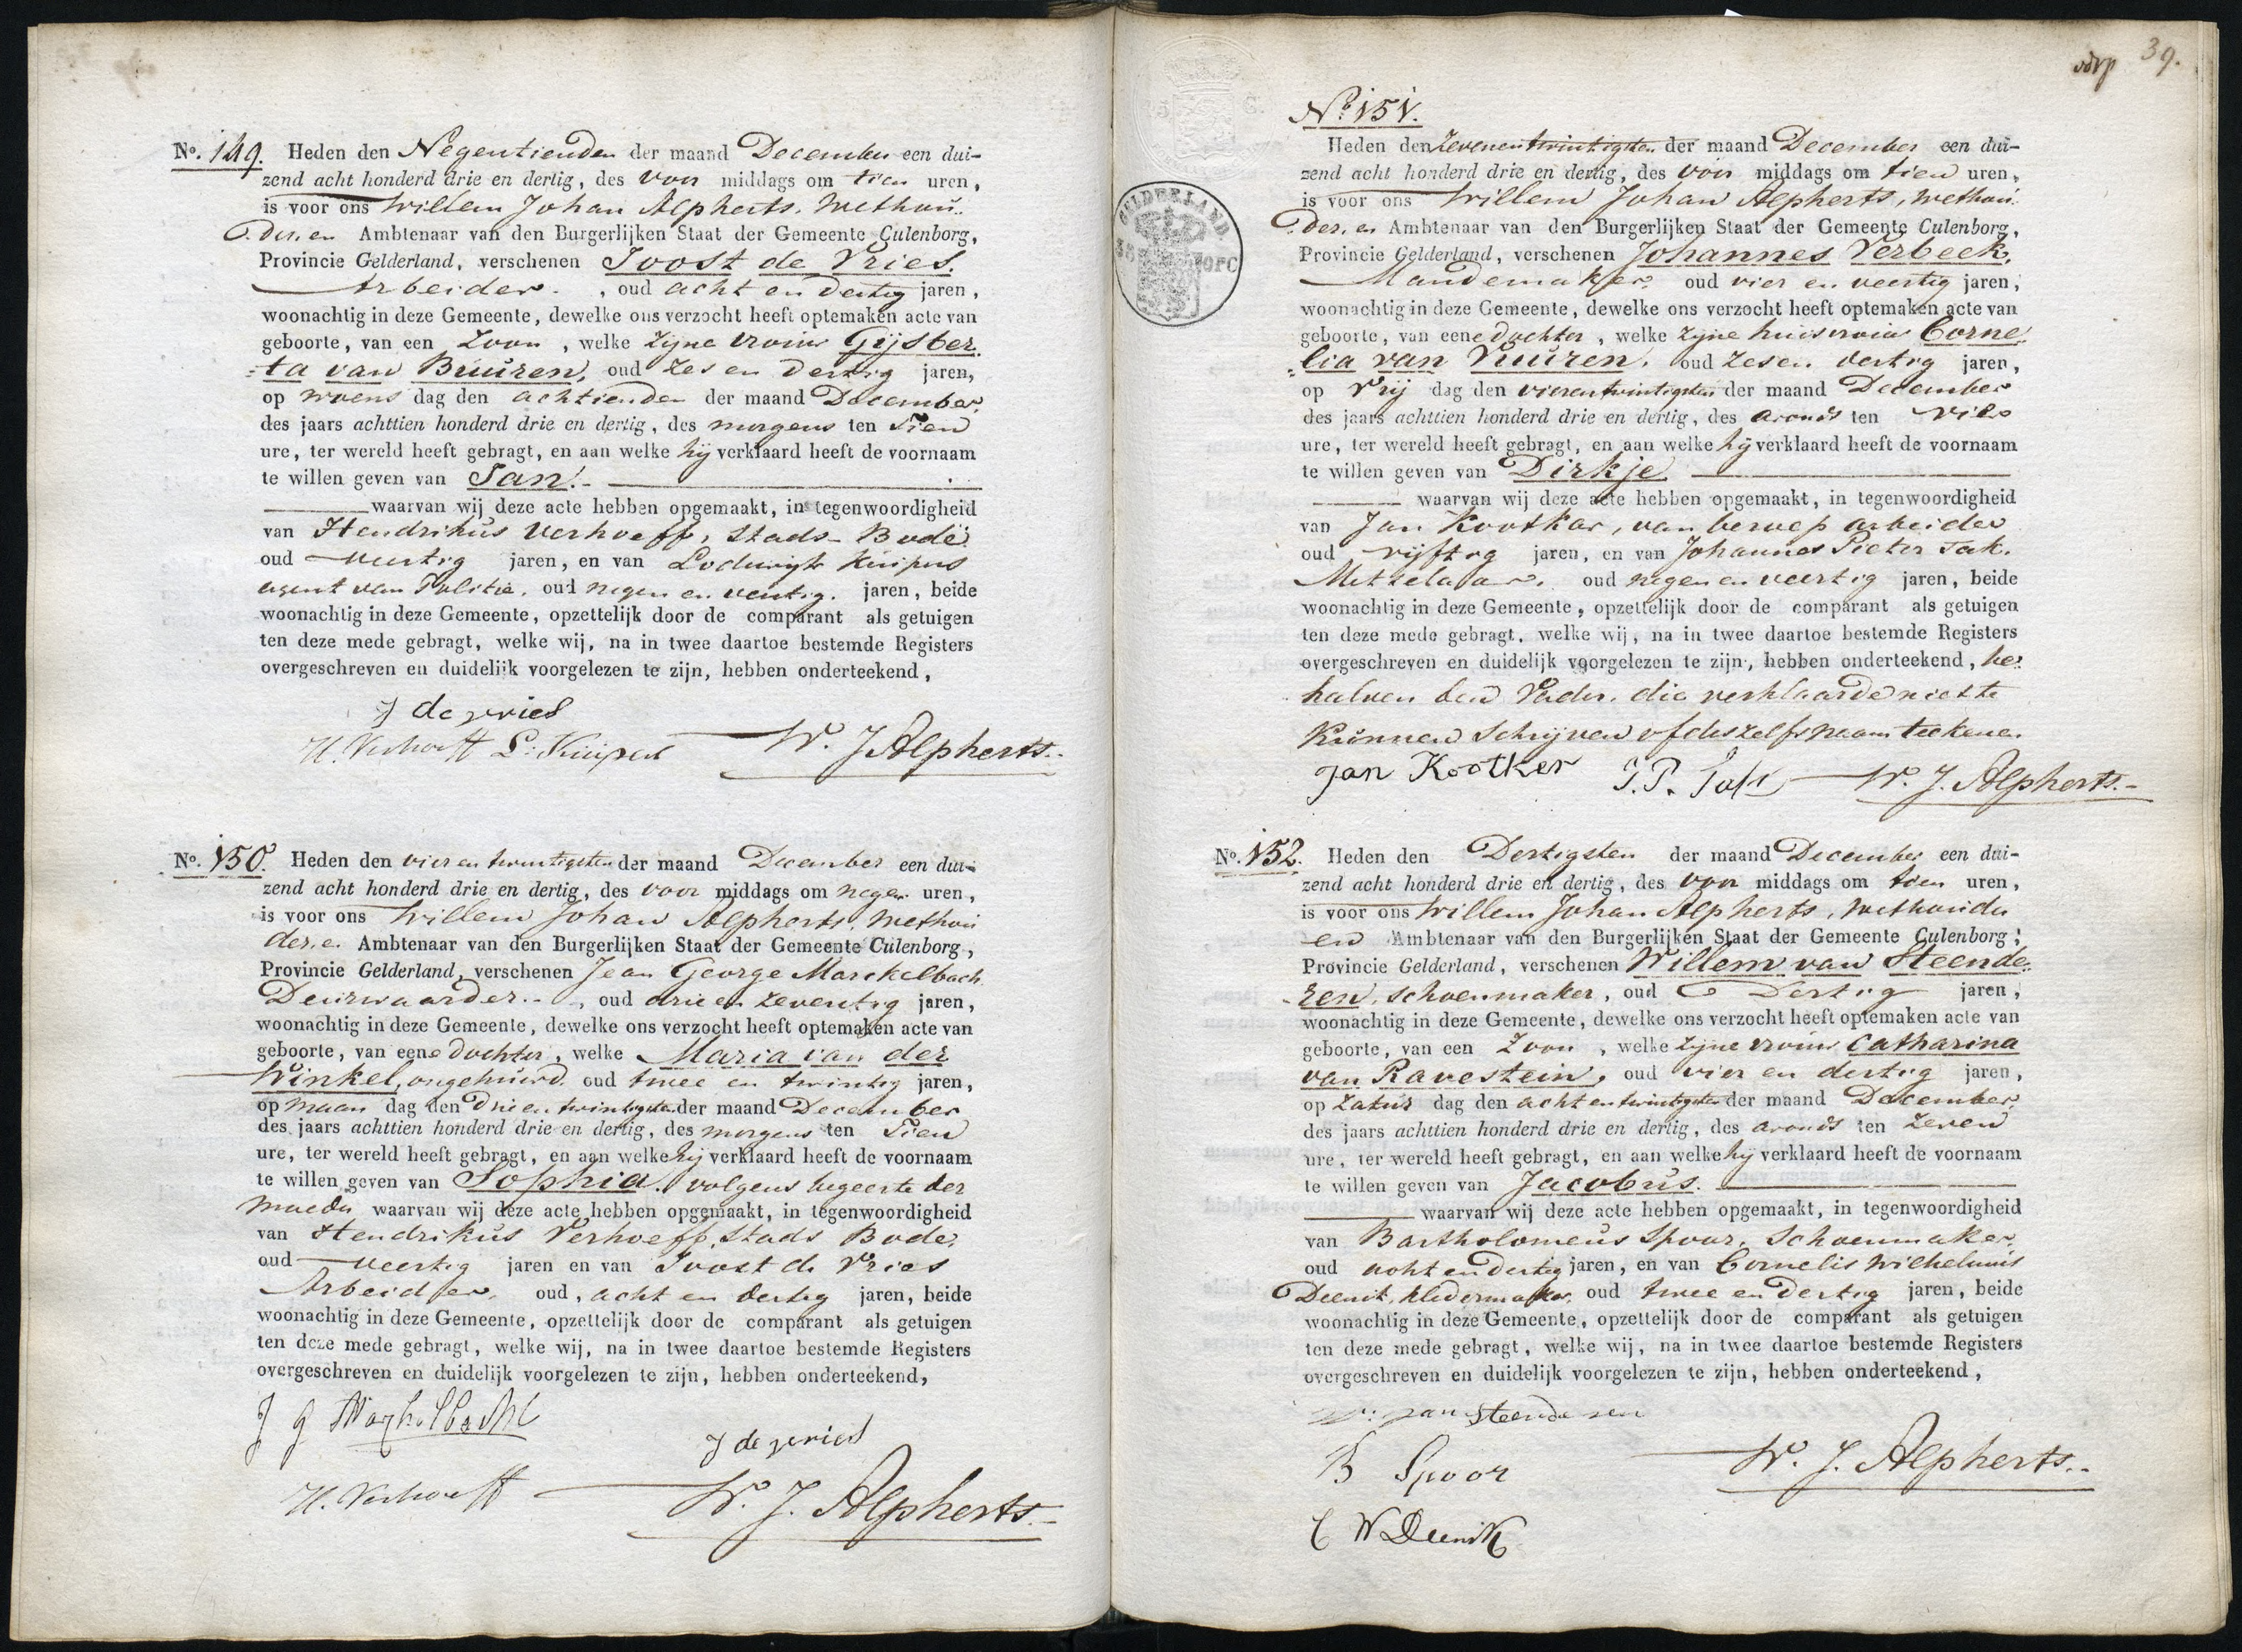 No. 149. Heden den Negentienden der maand December een dui-
zend acht honderd drie en dertig, des voor middags om tien uren,
is voor ons Willem Johan Alpherts, Wethou-
der, en Ambtenaar van den Burgerlijken Staat der Gemeente Culenborg,
Provincie Gelderland, verschenen Joost de Vries.
Arbeider, oud acht en dertig jaren,
woonachtig in deze Gemeente, dewelke ons verzocht heeft optemaken acte van
geboorte, van een Zoon, welke zijne vrouw Gijsber
=ta van Buuren, oud zes en dertig jaren,
op woens dag den achtienden der maand December
des jaars achttien honderd drie en dertig, des morgens ten Tien
ure, ter wereld heeft gebragt, en aan welke hij verklaard heeft de voornaam
te willen geven van Jan.
waarvan wij deze acte hebben opgemaakt, in tegenwoordigheid
van Hendrikus Verhoeff, Stads-Bode
oud veertig jaren, en van Lodewijk Kuipers
agent van Politie, oud negen en veertig jaren, beide
woonachtig in deze Gemeente, opzettelijk door de comparant als getuigen
ten deze mede gebragt, welke wij, na in twee daartoe bestemde Registers
overgeschreven en duidelijk voorgelezen te zijn, hebben onderteekend,
J de vries
H. Verhoeff L. Kuipers W. J. Alpherts.
No. 150. Heden den vier en twintigsten der maand December een dui-
zend acht honderd drie en dertig, des voor middags om negen uren,
is voor ons Willem Johan Alpherts, Wethou
der, en Ambtenaar van den Burgerlijken Staat der Gemeente Culenborg,
Provincie Gelderland, verschenen Jean George Marckelbach
Deurwaarder, oud drie en zeventig jaren,
woonachtig in deze Gemeente, dewelke ons verzocht heeft optemaken acte van
geboorte, van eene dochter, welke Maria van der
Winkel, ongehuwd, oud twee en twintig jaren,
op maan dag den drie en twintigsten der maand December
des jaars achttien honderd drie en dertig, des morgens ten Tien
ure, ter wereld heeft gebragt, en aan welke hij verklaard heeft de voornaam
te willen geven van Sophia. volgens begeerte der
moeder waarvan wij deze acte hebben opgemaakt, in tegenwoordigheid
van Hendrikus Verhoeff, Stads Bode,
oud veertig jaren en van Joost de Vries
Arbeider, oud, acht en dertig jaren, beide
woonachtig in deze Gemeente, opzettelijk door de comparant als getuigen
ten deze mede gebragt, welke wij, na in twee daartoe bestemde Registers
overgeschreven en duidelijk voorgelezen te zijn, hebben onderteekend,
J G
J de vries
H. Verhoeff W. J. Alpherts.
39.
GELDERLAND
No. 151.
Heden den Zevenentwintigsten der maand December een dui-
zend acht honderd drie en dertig, des voor middags om tien uren,
is voor ons Willem Johan Alpherts, Wethou
der, en Ambtenaar van den Burgerlijken Staat der Gemeente Culenborg,
Provincie Gelderland, verschenen Johannes Verbeek,
Mandemaker, oud vier en veertig jaren,
woonachtig in deze Gemeente, dewelke ons verzocht heeft optemaken acte van
geboorte, van eene dochter, welke zijne huisvrouw Corne
=lia van Vuuren, oud zes en dertig jaren,
op Vrij dag den vierentwintigsten der maand December
des jaars achttien honderd drie en dertig, des avonds ten vier
ure, ter wereld heeft gebragt, en aan welke hij verklaard heeft de voornaam
te willen geven van Dirkje
waarvan wij deze acte hebben opgemaakt, in tegenwoordigheid
van Jan Kootker, van beroep arbeider
oud vijftig jaren, en van Johannes Pieter Tak.
Metzelaar, oud negen en veertig jaren, beide
woonachtig in deze Gemeente, opzettelijk door de comparant als getuigen
ten deze mede gebragt, welke wij, na in twee daartoe bestemde Registers
overgeschreven en duidelijk voorgelezen te zijn, hebben onderteekend, be-
halven den Vader, die verklaarde niet te
kunnen schrijven of deszelfs naam teekenen
Jan Kootker J. P. Tak W. J. Alpherts.
No. 152. Heden den Dertigsten der maand December een dui-
zend acht honderd drie en dertig, des voor middags om tien uren,
is voor ons Willem Johan Alpherts, Wethouder
en Ambtenaar van den Burgerlijken Staat der Gemeente Culenborg,
Provincie Gelderland, verschenen Willem van Steende-
ren, schoenmaker, oud Dertig jaren,
woonachtig in deze Gemeente, dewelke ons verzocht heeft optemaken acte van
geboorte, van een Zoon, welke zijne vrouw Catharina
van Ravestein, oud vier en dertig jaren,
op Zatur dag den acht en twintigsten der maand December
des jaars achttien honderd drie en dertig, des avonds ten zeven
ure, ter wereld heeft gebragt, en aan welke hij verklaard heeft de voornaam
te willen geven van Jacobus.
waarvan wij deze acte hebben opgemaakt, in tegenwoordigheid
van Bartholomeus Spoor, Schoenmaker,
oud acht en dertig jaren, en van Cornelis Wilhelmus
Deenik, kledermaker, oud twee en dertig jaren, beide
woonachtig in deze Gemeente, opzettelijk door de comparant als getuigen
ten deze mede gebragt, welke wij, na in twee daartoe bestemde Registers
overgeschreven en duidelijk voorgelezen te zijn, hebben onderteekend,
W: van Steenderen
B Spoor W. J. Alpherts.
C W Deenik